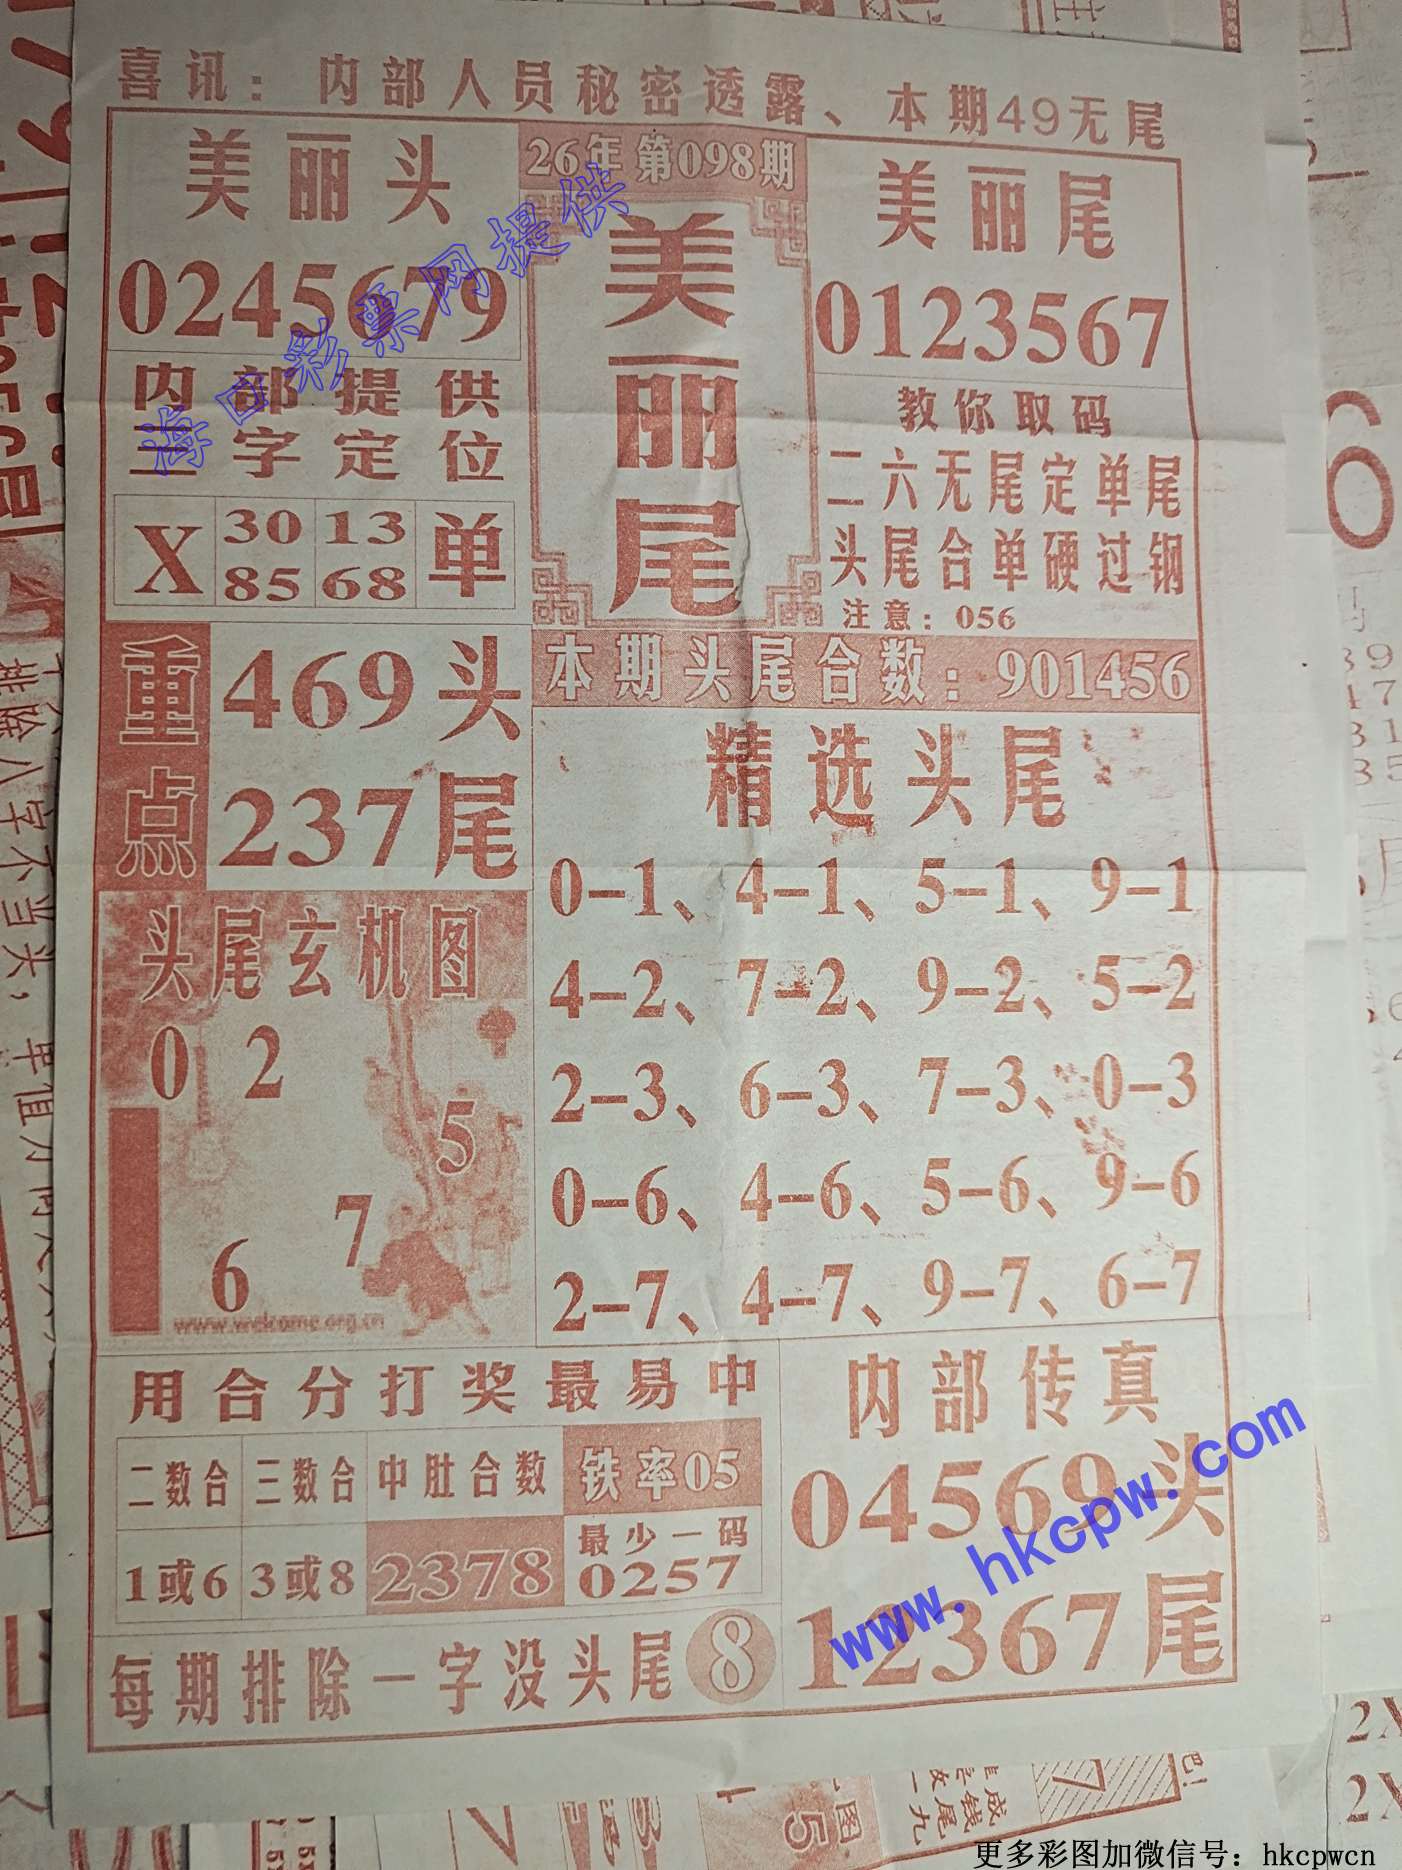 喜讯：内部人员秘密透露、本期49无尾
美丽头
0245679
26年第098期
美丽尾
美丽尾
0123567
内部提供
三字定位
X 30 13 单
85 68
教你取码
二六无尾定单尾
头尾合单硬过钢
注意：056
重点
469头
237尾
本期头尾合数：901456
精选头尾
0-1、4-1、5-1、9-1
4-2、7-2、9-2、5-2
2-3、6-3、7-3、0-3
0-6、4-6、5-6、9-6
2-7、4-7、9-7、6-7
头尾玄机图
0 2
5
7
6
www.welcome.org.cn
用合分打奖最易中
二数合 三数合 中肚合数 铁率05
1或6 3或8 2378 最少一码
0257
每期排除一字没头尾 8
内部传真
04569头
12367尾
海口彩票网提供
www.hkcpw.com
排除八字不当头，
更多彩图加微信号：hkcpwcn